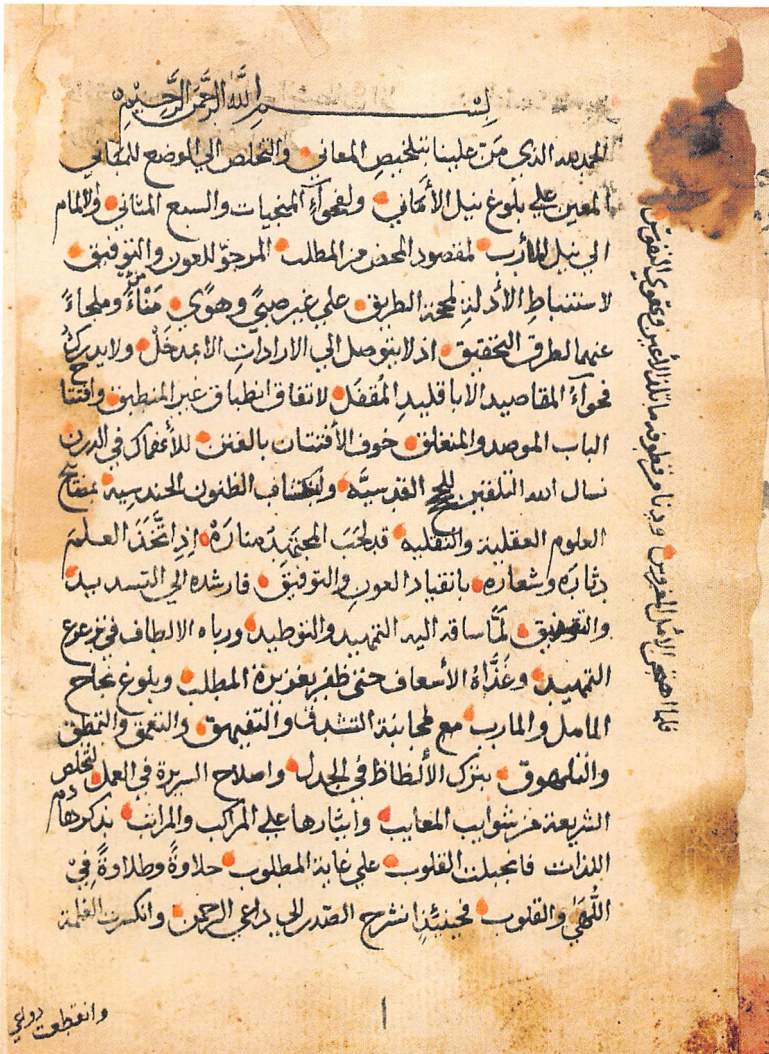 بسم الله الرحمن الرحيم
الحمد لله الذي منّ علينا بتلخيص المعاني والتخلص الي الوضع للمباني
المعين علي بلوغ نيل الأماني ولفحوآء المنجيات والسبع المثاني والالمام
الي نيل المأرب لمقصود المحض من المطلب المرجوّ للعون والتوفيق
لاستنباط الأدلة لمحجة الطريق علي غير صبيً وهوًي مَنْاءً وملجاءً
عنهما لطرق التحقيق اذ لا يتوصل الي الارادات الا بمدخل ولا يدرك
فحوآء المقاصيد الا باقليد المُقفَل لاتفاق انطباق غير المنطبق وافتتاح
الباب الموصد والمنغلق خوف الأفتتان بالفتن للأنهماك في الدرن
نسال الله التلقين للحجج القدسيّه ولانكشاف الظنون الحندسيه بمفتاح
العلوم العقلية والنقليه قد لحَبَ المجتهد منارَهْ اذا تّخَذَ العلم
دثارَه وشعارَه بانقياد العون والتوفيق فارشده الي التسديد
والتوفيق لمّا ساقه اليه التمهيد والتوطيد ورباه الالطاف في ترعرع
التمهيد وغَذّاهُ الأسعاف حتى ظفر بغويزة المطلب وبلوغ نجاح
المامل والمارب مع مجانبة التشدق والتفيهق والتعمق والتمطق
والتلهوق بترك الألظاظ في الجدل واصلاح السريرة في العمل لتخلص
الشريعة من شوايب المعايب وايثارها علي المراكب والمراتب بذكرها دم
اللذات فانجبلت القلوب علي غاية المطلوب حلاوةً وطلاوةً في
اللُّهَي والقلوب فحينئذٍ انشرح الصّدر الي داعي الرحمن وانكسرت الغلمة
وانقطعت دواعي
فلما اصتغى الأمل المغروس ودنا من قطوفه ما تلذ الأعين وتقوي النفوس
١